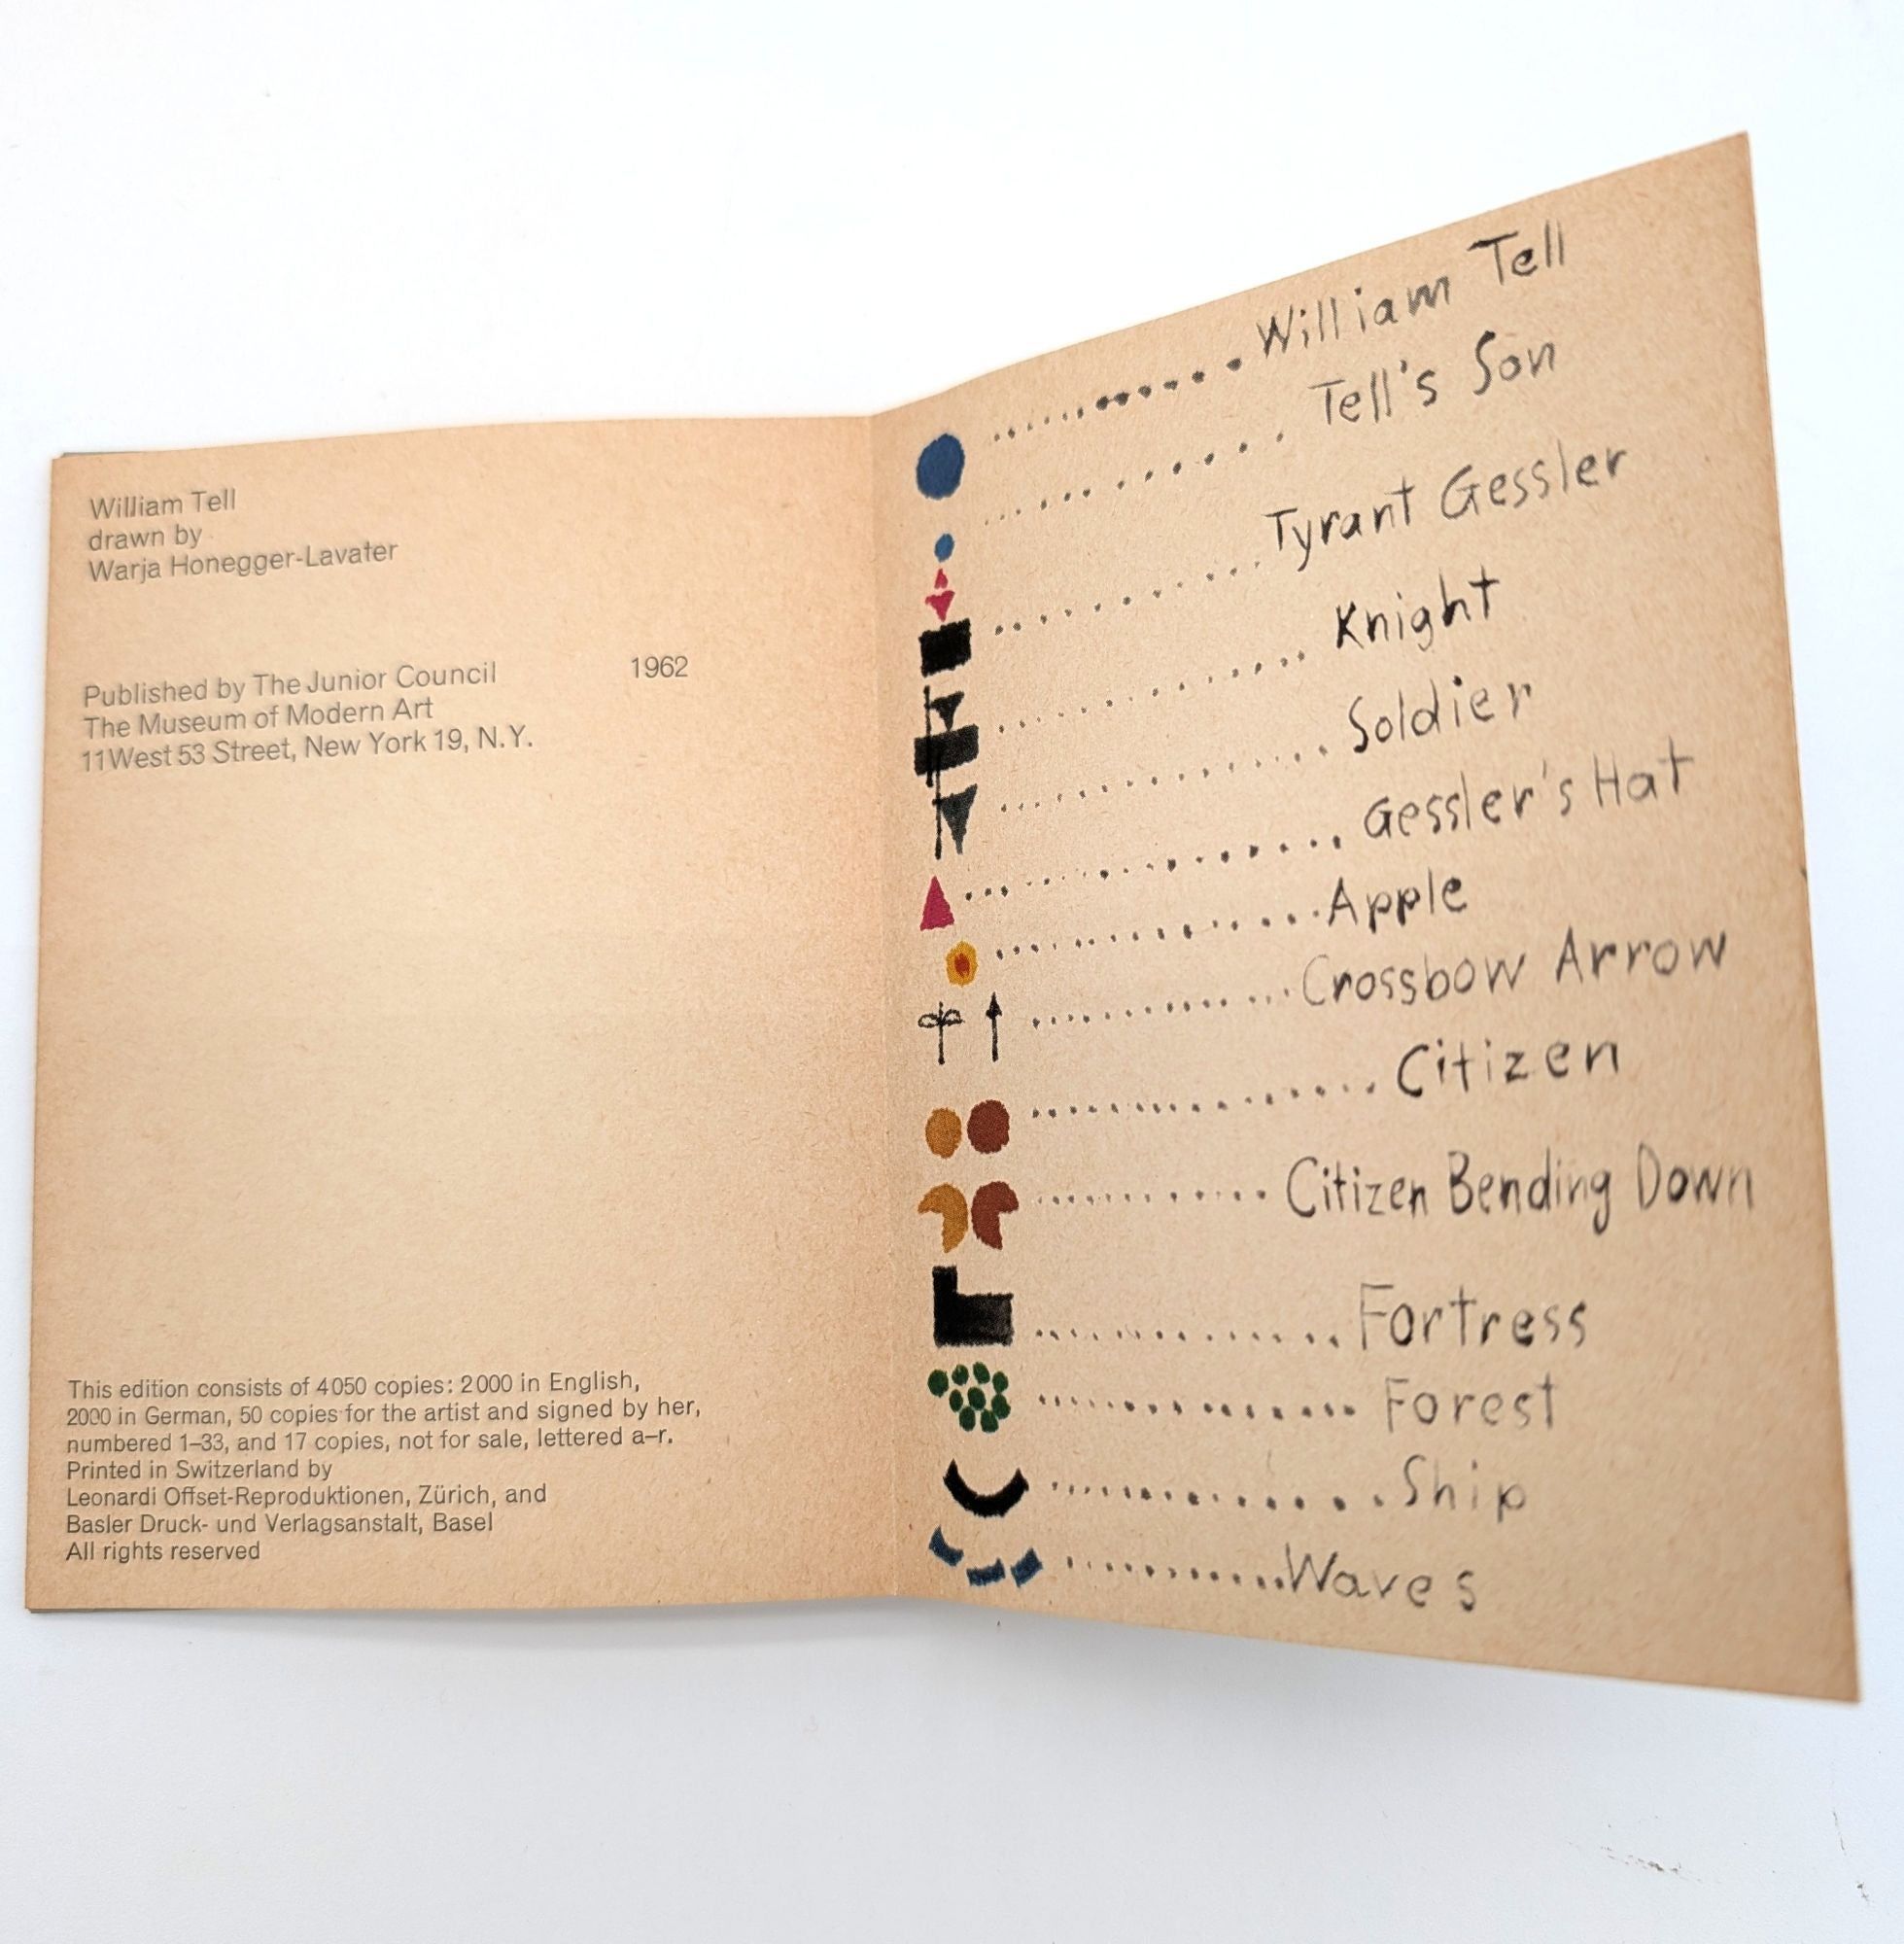 William Tell
drawn by
Warja Honegger-Lavater
Published by The Junior Council 1962
The Museum of Modern Art
11 West 53 Street, New York 19, N.Y.
This edition consists of 4050 copies: 2000 in English,
2000 in German, 50 copies for the artist and signed by her,
numbered 1–33, and 17 copies, not for sale, lettered a–r.
Printed in Switzerland by
Leonardi Offset-Reproduktionen, Zürich, and
Basler Druck- und Verlagsanstalt, Basel
All rights reserved
William Tell
Tell's Son
Tyrant Gessler
Knight
Soldier
Gessler's Hat
Apple
Crossbow Arrow
Citizen
Citizen Bending Down
Fortress
Forest
Ship
Waves